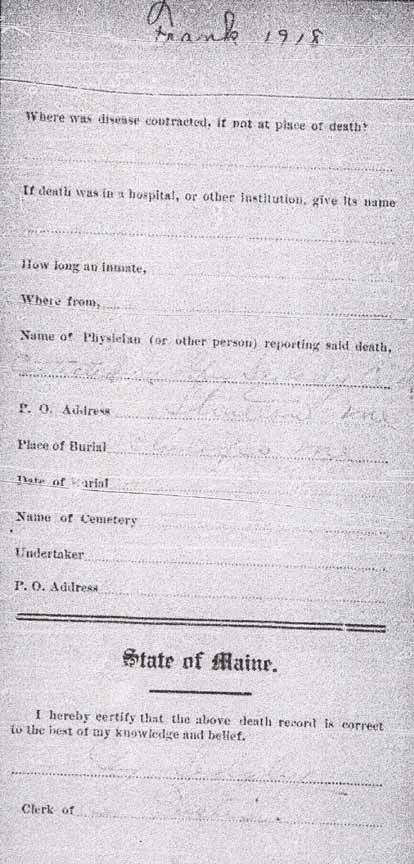 Frank 1918
Where was disease contracted, if not at place of death?
If death was in a hospital, or other institution, give its name
How long an inmate,
Where from,
Name of Physician (or other person) reporting said death,
P. O. Address me
Place of Burial me
Date of Burial
Name of Cemetery
Undertaker
P. O. Address
State of Maine.
I hereby certify that the above death record is correct
to the best of my knowledge and belief.
Clerk of